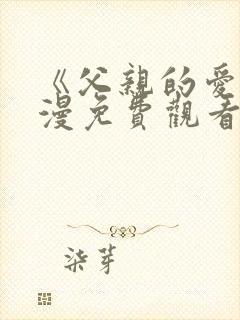 《父親的愛
漫免費觀看
柒芽